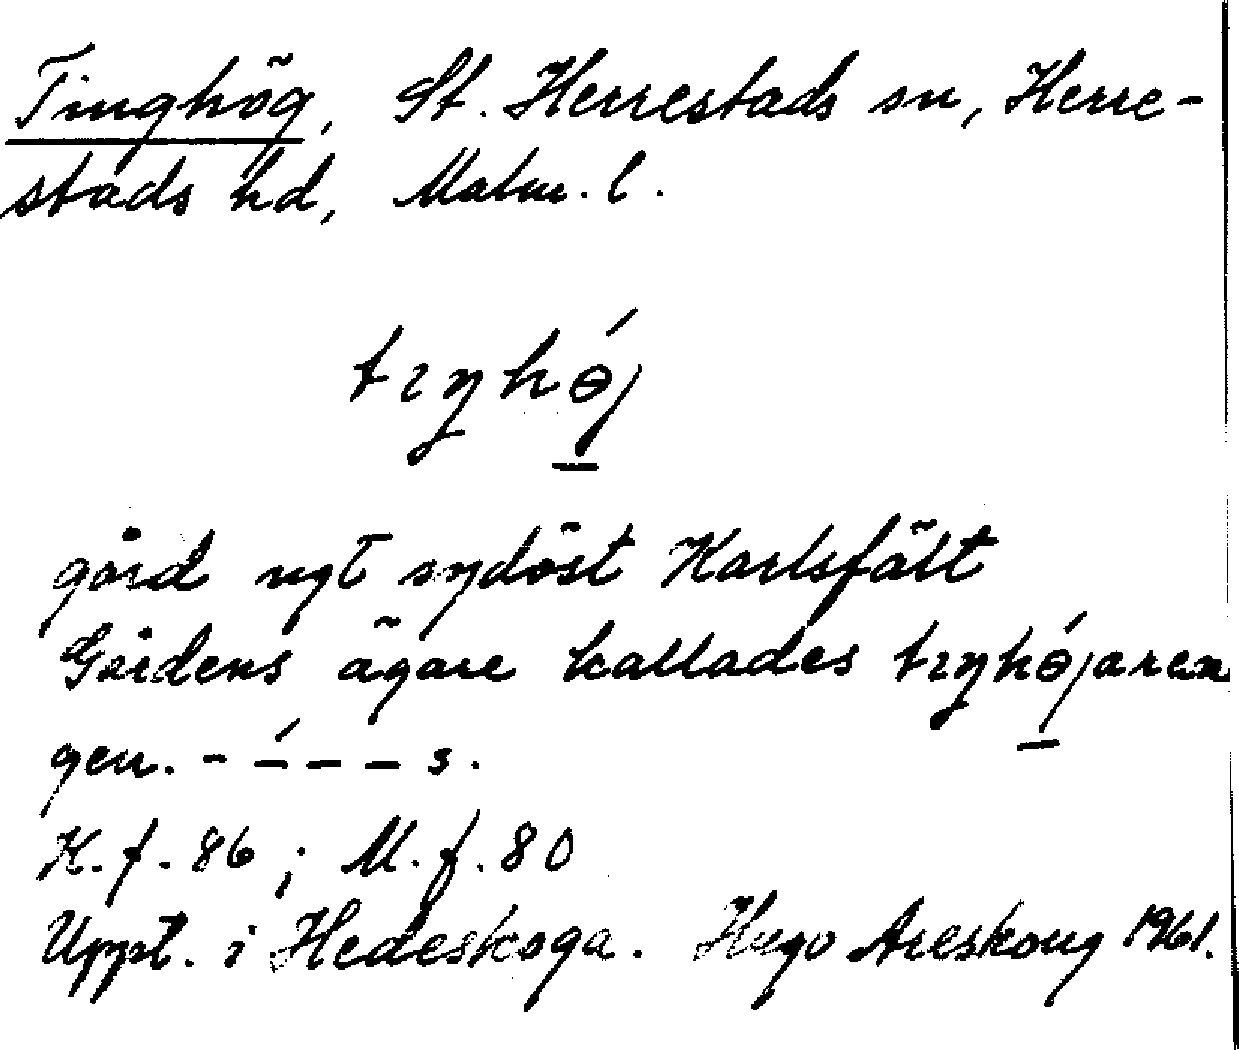 Tinghög, St. Herrestads sn, Herre-
stads hd, Malm. l.
tıŋhǿj
gård nytt sydöst Karlsfält
Gårdens ägare kallades tıŋhǿjaren
gen. - -́ - - s.
K. f. 86 ; M. f. 80
Uppt. i Hedeskoga. Hugo Areskoug 1961.